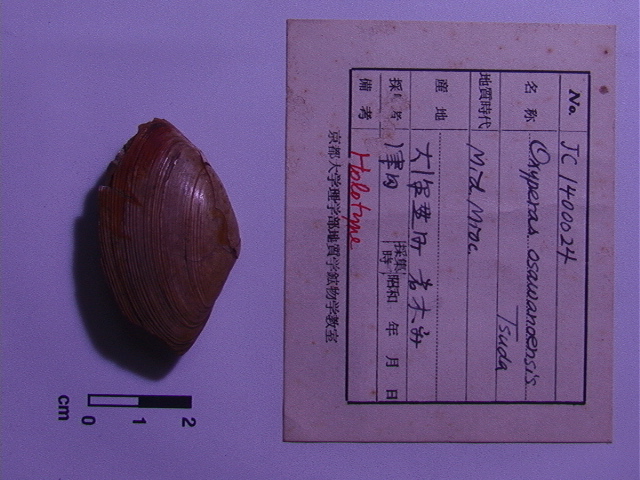 No. JC1400024
名称 Oxyperas osawanoensis
Tsuda
地質時代 Mid Mioc.
産地
採集者 津田 採集時 昭和 年 月 日
備考 Holotype
京都大学理学部地質学鉱物学教室
0 1 2
cm